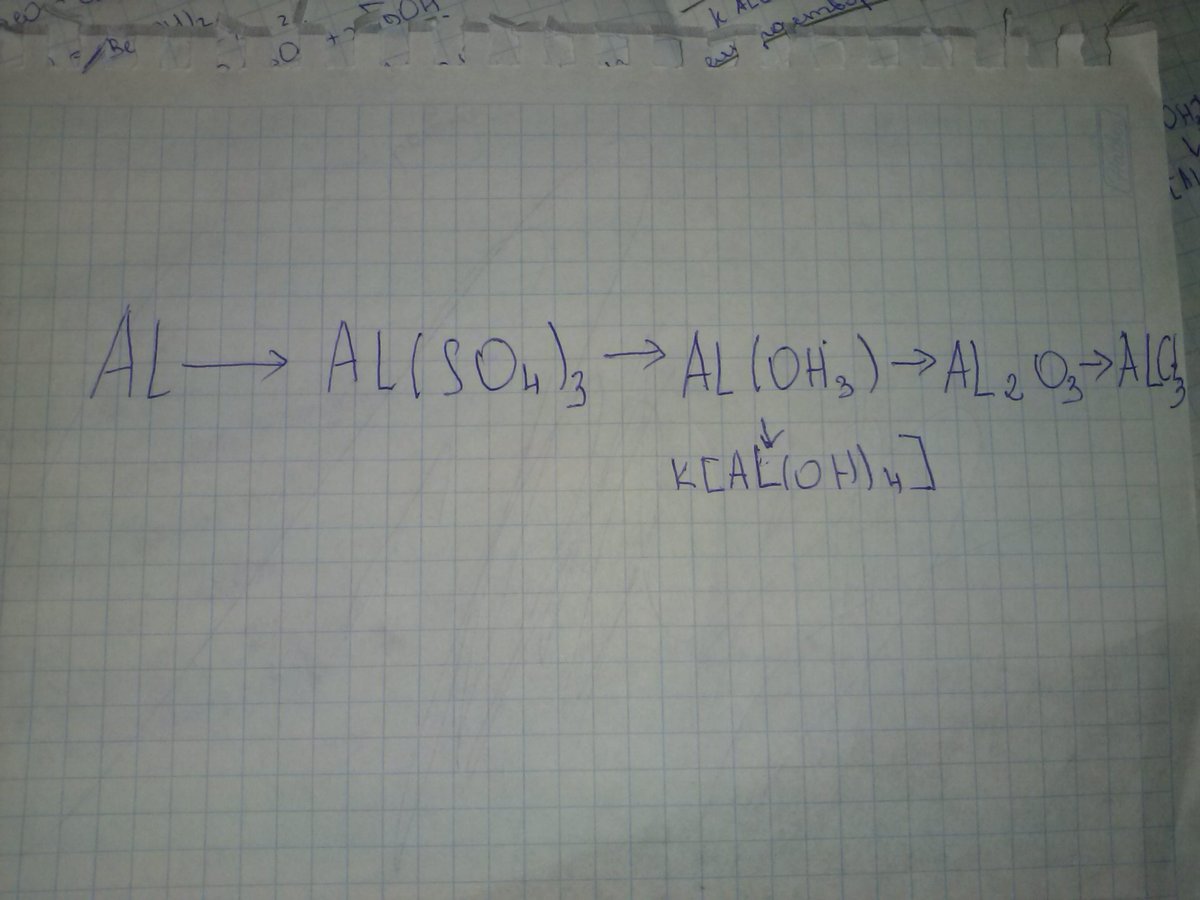 AL → AL(SO₄)₃ → AL(OH₃) → AL₂O₃ → ALCl₃
↓
K[AL(OH)₄]